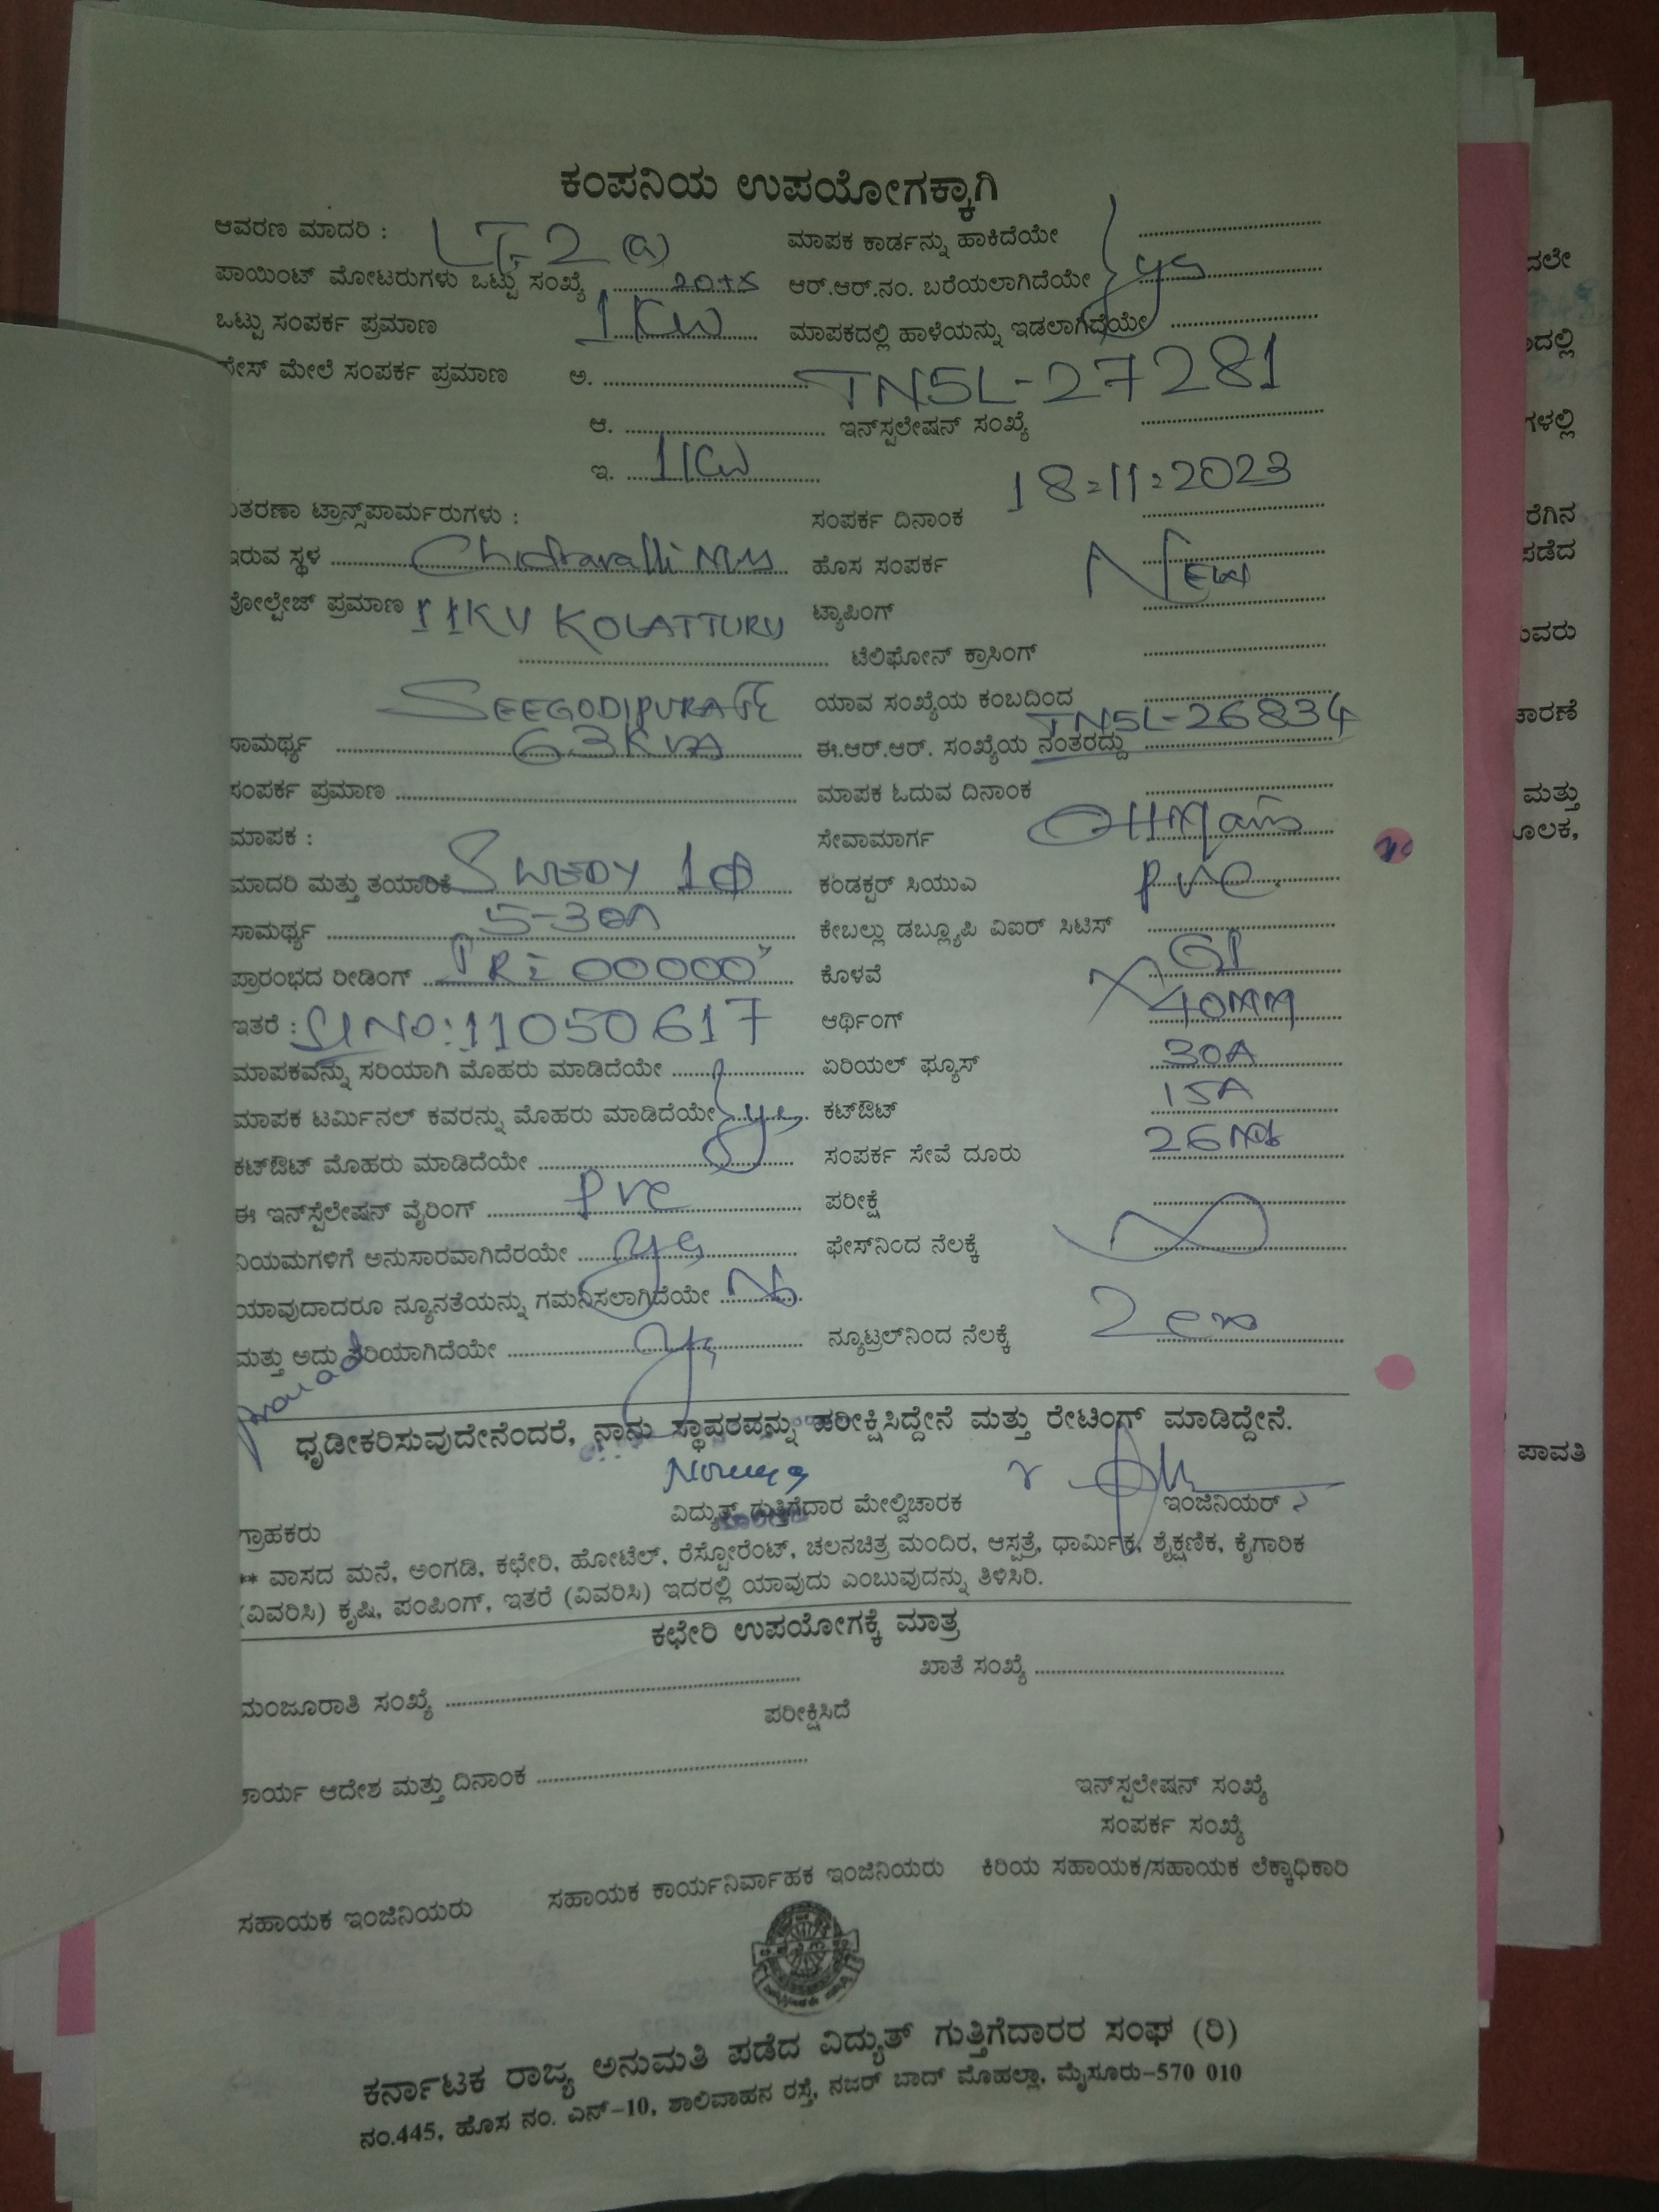 ಕಂಪನಿಯ ಉಪಯೋಗಕ್ಕಾಗಿ
ಆವರಣ ಮಾದರಿ : LT-2 (a) ಮಾಪಕ ಕಾರ್ಡನ್ನು ಹಾಕಿದೆಯೇ
ಪಾಯಿಂಟ್ ಮೋಟರುಗಳು ಒಟ್ಟು ಸಂಖ್ಯೆ ಆರ್.ಆರ್.ನಂ. ಬರೆಯಲಾಗಿದೆಯೇ yes
ಒಟ್ಟು ಸಂಪರ್ಕ ಪ್ರಮಾಣ 1 KW ಮಾಪಕದಲ್ಲಿ ಹಾಳೆಯನ್ನು ಇಡಲಾಗಿದೆಯೇ
ಫೇಸ್ ಮೇಲೆ ಸಂಪರ್ಕ ಪ್ರಮಾಣ ಅ. TNSL-27281
ಆ. ಇನ್‌ಸ್ಪಲೇಷನ್ ಸಂಖ್ಯೆ
ಇ. 1 KW 18-11-2023
ವಿತರಣಾ ಟ್ರಾನ್ಸ್‌ಪಾರ್ಮರುಗಳು : ಸಂಪರ್ಕ ದಿನಾಂಕ
ಇರುವ ಸ್ಥಳ ಹೊಸ ಸಂಪರ್ಕ NEW
ವೋಲ್ಟೇಜ್ ಪ್ರಮಾಣ 11KV KOLATTURU ಟ್ಯಾಪಿಂಗ್
ಟೆಲಿಫೋನ್ ಕ್ರಾಸಿಂಗ್
SEEGODIPURA ಯಾವ ಸಂಖ್ಯೆಯ ಕಂಬದಿಂದ
ಸಾಮರ್ಥ್ಯ 63KVA ಈ.ಆರ್.ಆರ್. ಸಂಖ್ಯೆಯ ನಂತರದ್ದು TNSL-26834
ಸಂಪರ್ಕ ಪ್ರಮಾಣ ಮಾಪಕ ಓದುವ ದಿನಾಂಕ
ಮಾಪಕ : ಸೇವಾಮಾರ್ಗ OH Main
ಮಾದರಿ ಮತ್ತು ತಯಾರಿಕೆ 1Φ ಕಂಡಕ್ಟರ್ ಸಿಯುಎ PVC
ಸಾಮರ್ಥ್ಯ 5-30A ಕೇಬಲ್ಲು ಡಬ್ಲ್ಯೂಪಿ ವಿಐರ್ ಸಿಟಿಸ್
ಪ್ರಾರಂಭದ ರೀಡಿಂಗ್ IR: 00000 ಕೊಳವೆ GI
ಇತರೆ : Sl No: 11050617 ಆರ್ಥಿಂಗ್ 40MM
ಮಾಪಕವನ್ನು ಸರಿಯಾಗಿ ಮೊಹರು ಮಾಡಿದೆಯೇ ಏರಿಯಲ್ ಫ್ಯೂಸ್ 30A
ಮಾಪಕ ಟರ್ಮಿನಲ್ ಕವರನ್ನು ಮೊಹರು ಮಾಡಿದೆಯೇ yes ಕಟ್‌ಔಟ್ 15A
ಕಟ್‌ಔಟ್ ಮೊಹರು ಮಾಡಿದೆಯೇ ಸಂಪರ್ಕ ಸೇವೆ ದೂರು
ಈ ಇನ್‌ಸ್ಪೆಲೇಷನ್ ವೈರಿಂಗ್ PVC ಪರೀಕ್ಷೆ
ನಿಯಮಗಳಿಗೆ ಅನುಸಾರವಾಗಿದೆರಯೇ yes ಫೇಸ್‌ನಿಂದ ನೆಲಕ್ಕೆ ∞
ಯಾವುದಾದರೂ ನ್ಯೂನತೆಯನ್ನು ಗಮನಿಸಲಾಗಿದೆಯೇ No
ಮತ್ತು ಅದು ಸರಿಯಾಗಿದೆಯೇ yes ನ್ಯೂಟ್ರಲ್‌ನಿಂದ ನೆಲಕ್ಕೆ Zero
ಧೃಡೀಕರಿಸುವುದೇನೆಂದರೆ, ನಾನು ಸ್ಥಾವರವನ್ನು ಪರೀಕ್ಷಿಸಿದ್ದೇನೆ ಮತ್ತು ರೇಟಿಂಗ್ ಮಾಡಿದ್ದೇನೆ.
ಗ್ರಾಹಕರು ವಿದ್ಯುತ್ ಗುತ್ತಿಗೆದಾರ ಮೇಲ್ವಿಚಾರಕ ಇಂಜಿನಿಯರ್
** ವಾಸದ ಮನೆ, ಅಂಗಡಿ, ಕಛೇರಿ, ಹೋಟೆಲ್, ರೆಸ್ಟೋರೆಂಟ್, ಚಲನಚಿತ್ರ ಮಂದಿರ, ಆಸ್ಪತ್ರೆ, ಧಾರ್ಮಿಕ, ಶೈಕ್ಷಣಿಕ, ಕೈಗಾರಿಕ
(ವಿವರಿಸಿ) ಕೃಷಿ, ಪಂಪಿಂಗ್, ಇತರೆ (ವಿವರಿಸಿ) ಇದರಲ್ಲಿ ಯಾವುದು ಎಂಬುವುದನ್ನು ತಿಳಿಸಿರಿ.
ಕಛೇರಿ ಉಪಯೋಗಕ್ಕೆ ಮಾತ್ರ
ಮಂಜೂರಾತಿ ಸಂಖ್ಯೆ ಖಾತೆ ಸಂಖ್ಯೆ
ಪರೀಕ್ಷಿಸಿದೆ
ಕಾರ್ಯ ಆದೇಶ ಮತ್ತು ದಿನಾಂಕ
ಇನ್‌ಸ್ಪಲೇಷನ್ ಸಂಖ್ಯೆ
ಸಂಪರ್ಕ ಸಂಖ್ಯೆ
ಸಹಾಯಕ ಇಂಜಿನಿಯರು ಸಹಾಯಕ ಕಾರ್ಯನಿರ್ವಾಹಕ ಇಂಜಿನಿಯರು ಕಿರಿಯ ಸಹಾಯಕ/ಸಹಾಯಕ ಲೆಕ್ಕಾಧಿಕಾರಿ
ಕರ್ನಾಟಕ ರಾಜ್ಯ ಅನುಮತಿ ಪಡೆದ ವಿದ್ಯುತ್ ಗುತ್ತಿಗೆದಾರರ ಸಂಘ (ರಿ)
ನಂ.445, ಹೊಸ ನಂ. ಎನ್-10, ಶಾಲಿವಾಹನ ರಸ್ತೆ, ನಜರ್ ಬಾದ್ ಮೊಹಲ್ಲಾ, ಮೈಸೂರು-570 010